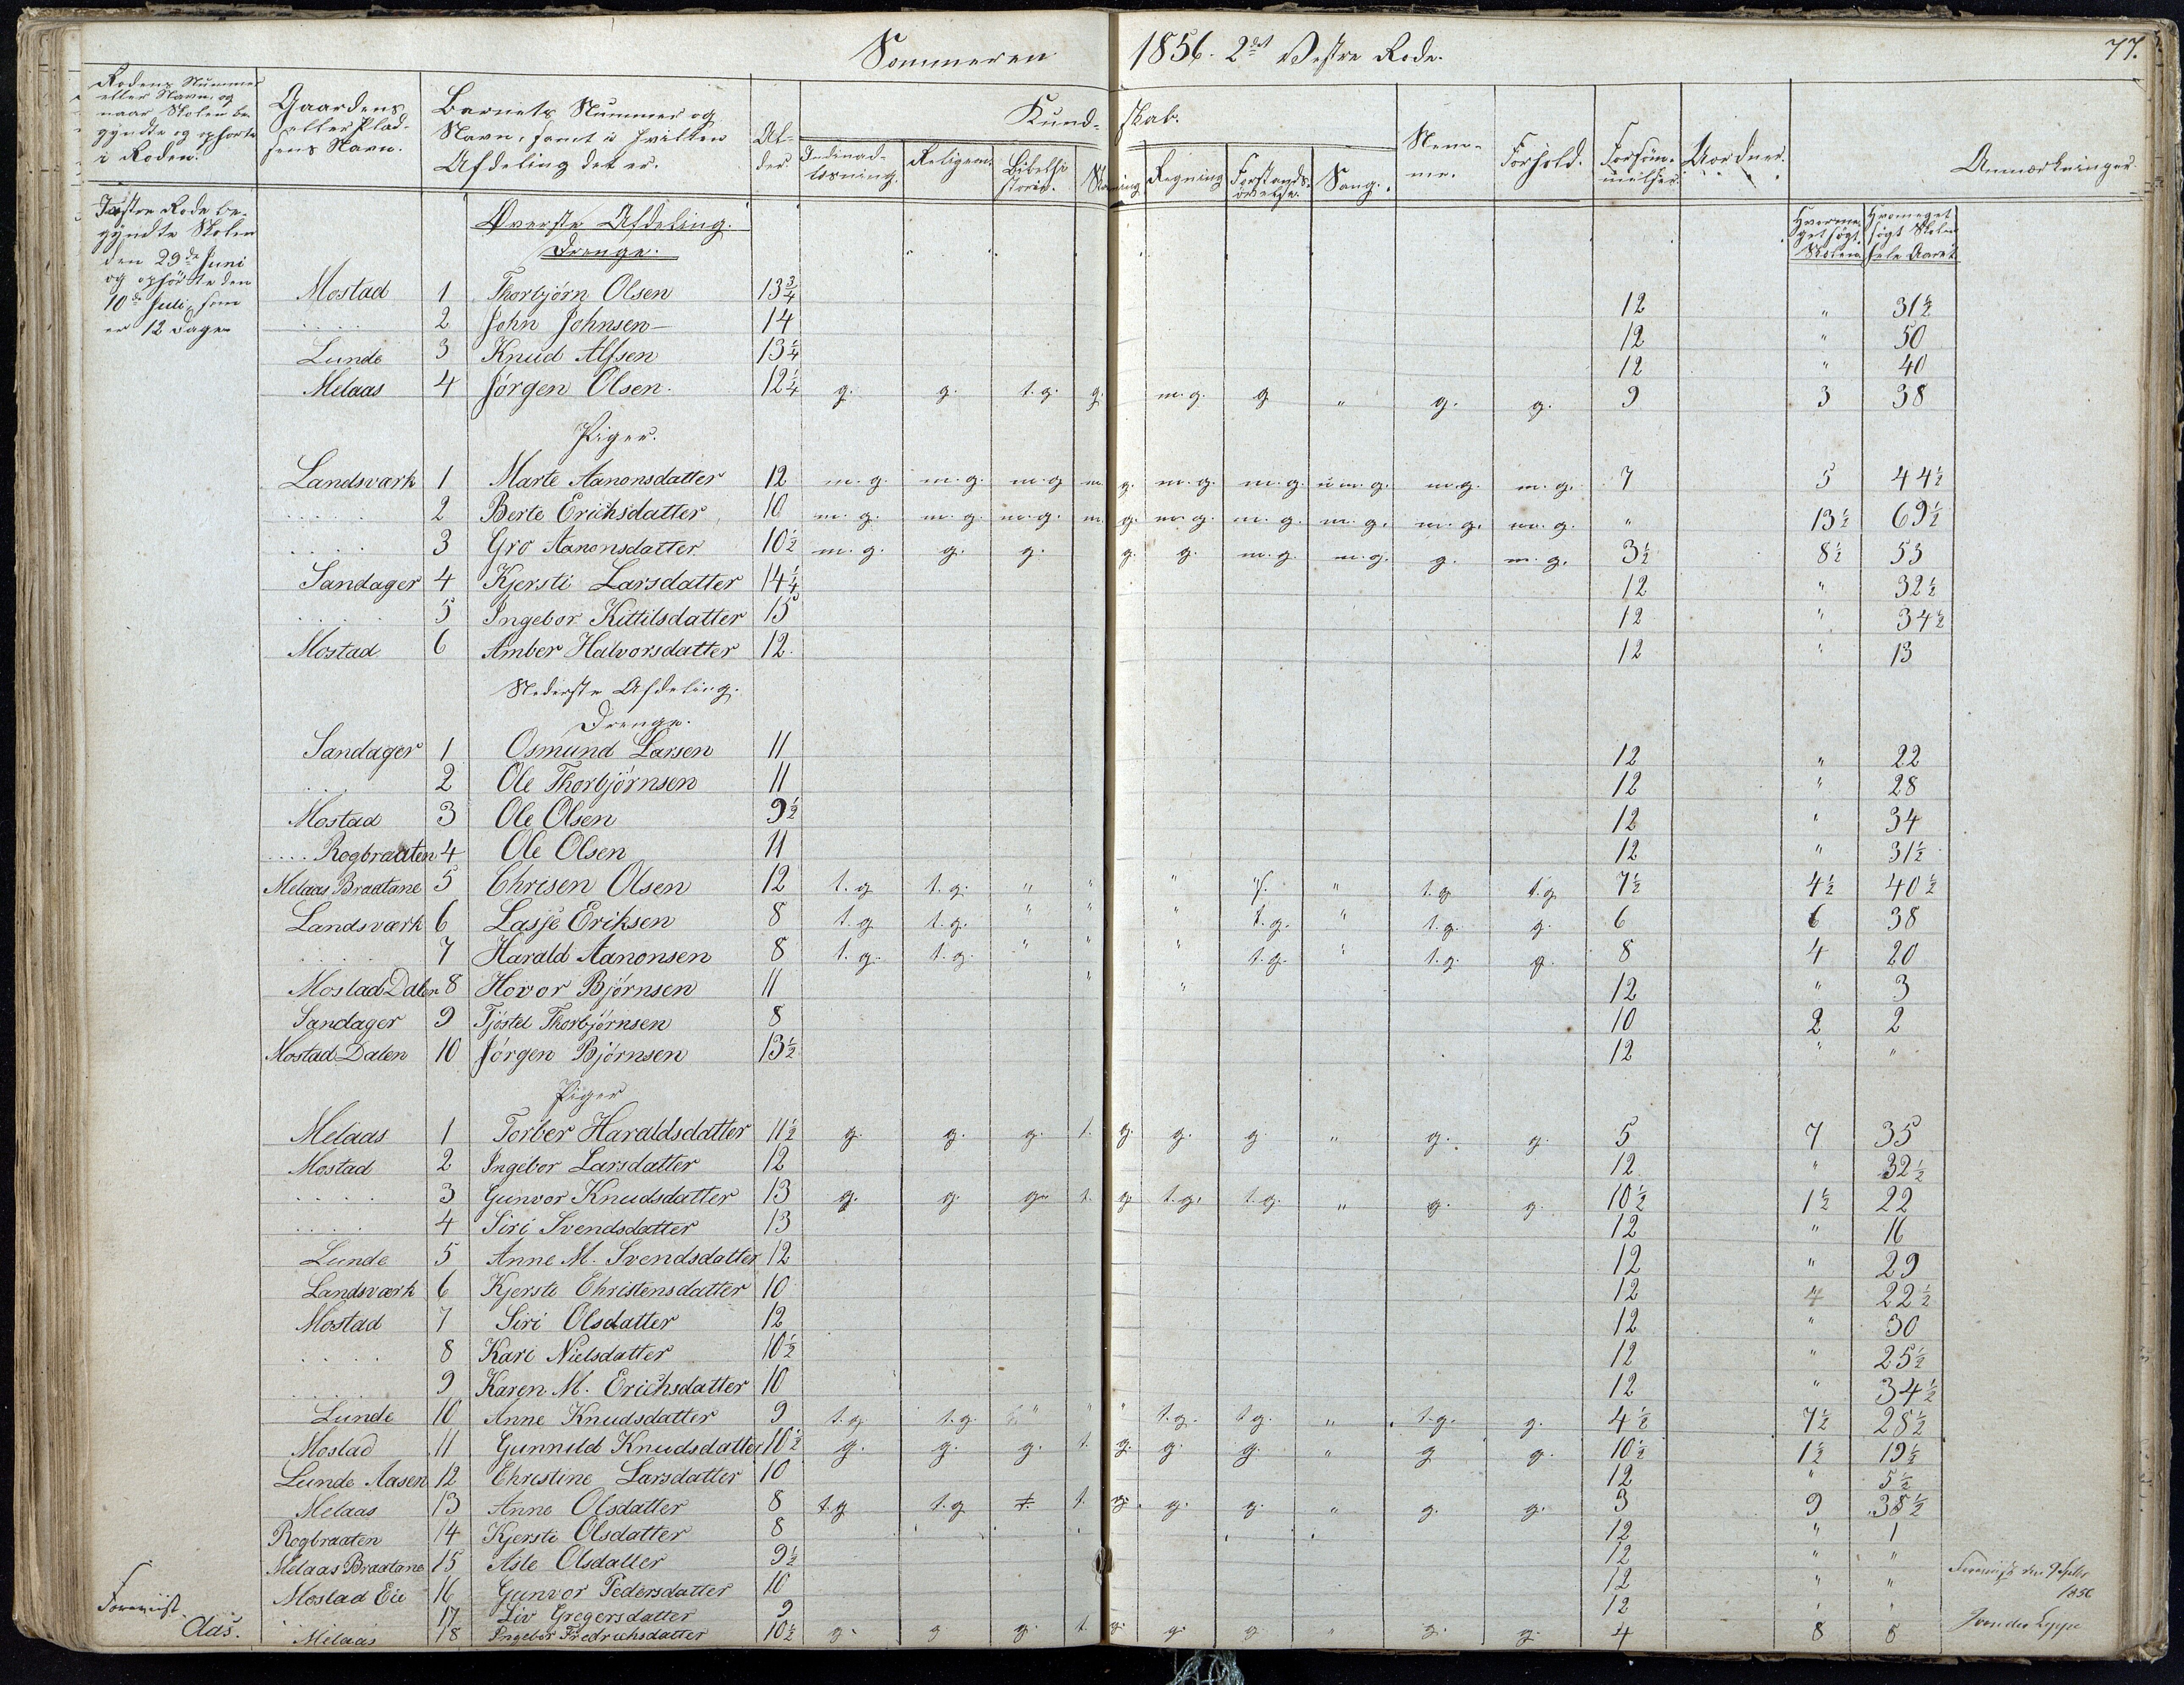 Sommeren 1856. 2det Vestre Rode.
77.
Rodens Nummer eller Navn, og naar Skolen begyndte og ophørte i Roden.
Gaardens eller Pladsens Navn.
Barnets Nummer og Navn, samt i hvilken Afdeling det er.
Alder.
Kundskab.
Religion.
Bibelhistorie.
Skrivning
Regning
Forstandsøvelse.
Sang.
Nemme.
Forhold.
Forsømmelser.
Uorden.
Anmærkninger.
Hvormeget søgt Skolen
Hvormeget søgt Skolen hele Aaret
Vestre Rode begyndte Skolen den 29de Juni og ophørte den 10de Juli, som er 12 Dage
Øverste Afdeling.
Drenge.
Mostad 1 Thorbjørn Olsen 13 3/4 12 " 31 1/2
.... 2 John Johnsen 14 12 " 50
Lunde 3 Knud Alfsen 13 1/4 12 " 40
Melaas 4 Jørgen Olsen. 12 1/4 g. g. t.g. g. m.g. g " g. g. 9 3 38
Piger.
Landsværk 1 Marte Aanonsdatter 12 m.g. m.g. m.g m. g. m.g. m.g. m.g. m.g. m.g. 7 5 44 1/2
.... 2 Berte Erichsdatter 10 m.g. m.g. m.g. m. g. m.g. m.g. m.g. m.g. m.g. " 13 1/2 69 1/2
.... 3 Gro Aanonsdatter 10 1/2 m.g. g. g. g. g. m.g. m.g. g. m.g. 3 1/2 8 1/2 53
Sandager 4 Kjersti Larsdatter 14 1/4 12 " 32 1/2
.... 5 Ingebor Kittilsdatter 15 12 " 34 1/2
Mostad 6 Amber Halvorsdatter 12 12 " 13
Nederste Afdeling.
Drenge.
Sandager 1 Osmund Larsen 11 12 " 22
... 2 Ole Thorbjørnsen 11 12 " 28
Mostad 3 Ole Olsen 9 1/2 12 " 34
.... Rogbraaten 4 Ole Olsen 11 12 " 31 1/2
Melaas Braatane 5 Chrisen Olsen 12 t.g t.g. " " " " t.g t.g 7 1/2 4 1/2 40 1/2
Landsværk 6 Lasje Eriksen 8 t.g t.g. " " " t.g. " t.g. g. 6 6 38
.... 7 Harald Aanonsen 8 t.g. t.g. " " " t.g. " t.g. g. 8 4 20
Mostad Dalen 8 Hovor Bjørnsen 11 " " 12 " 3
Sandager 9 Tjøstel Thorbjørnsen 8 10 2 2
Mostad Dalen 10 Jørgen Bjørnsen 13 1/2 12 " "
Piger
Melaas 1 Torber Haraldsdatter 11 1/2 g. g. g. t. g. g. g " g. g. 5 7 35
Mostad 2 Ingebor Larsdatter 12 12 " 32 1/2
.... 3 Gunvor Knudsdatter 13 g. g. g. t. g t.g. t.g. " g. g. 10 1/2 1 1/2 22
.... 4 Siri Svendsdatter 13 12 " 16
Lunde 5 Anne M. Svendsdatter 12 12 " 29
Landsværk 6 Kjersti Christensdatter 10 12 22 1/2
Mostad 7 Siri Olsdatter 12 12 " 30
.... 8 Kari Nielsdatter 10 1/2 12 " 25 1/2
.... 9 Karen M. Erichsdatter 10 12 " 34 1/2
Lunde 10 Anne Knudsdatter 9 t.g. t.g. " " " t.g. t.g. " t.g. g. 4 1/2 7 1/2 28 1/2
Mostad 11 Gunnild Knudsdatter 10 1/2 g. g. g. t. g. g. g. " g g. 10 1/2 1 1/2 19 1/2
Lunde Aasen 12 Christine Larsdatter 10 12 " 5 1/2
Melaas 13 Anne Olsdatter 8 t.g t.g t. t. g. g. g. " g. g. 3 9 38 1/2
Rogbraaten 14 Kjersti Olsdatter 8 12 " 1
Melaas Braatane 15 Asle Olsdatter 9 1/2 12 " "
Mostad Eie 16 Gunvor Pedersdatter 10 12 " "
17 Liv Gregersdatter 9 12 " "
Melaas 18 Ingebor Fredrichsdatter 10 1/2 g. g g. t. g. g. g " g. g. 4 8 8
Foreviist.
Aas.
1856